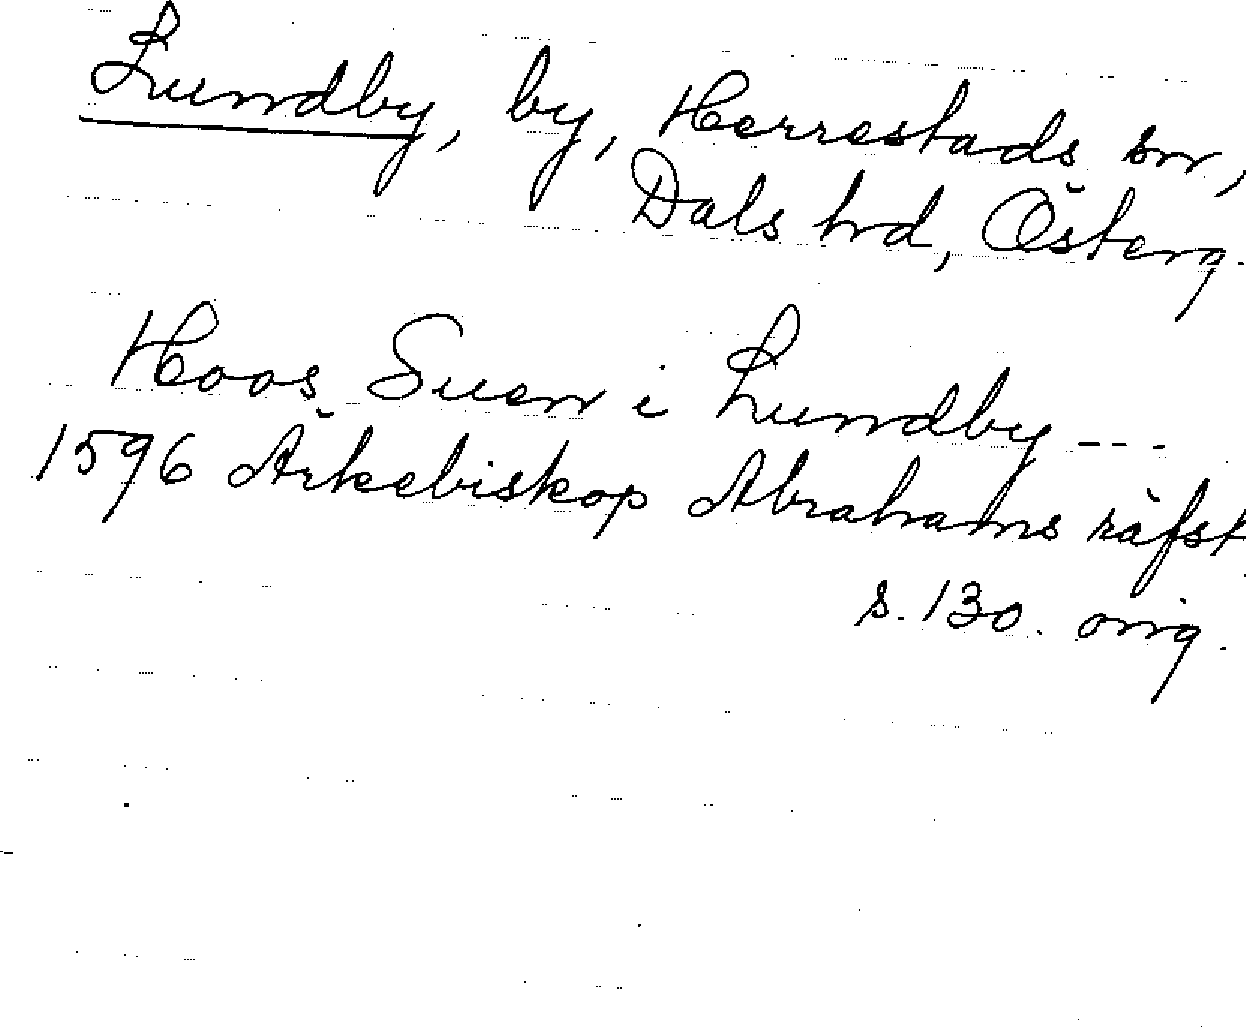 Lundby, by, Herrestads sn,
Dals hrd, Österg.
Hoos Suen i Lundby ---
1596 Ärkebiskop Abrahams räfst
s. 130. orig.